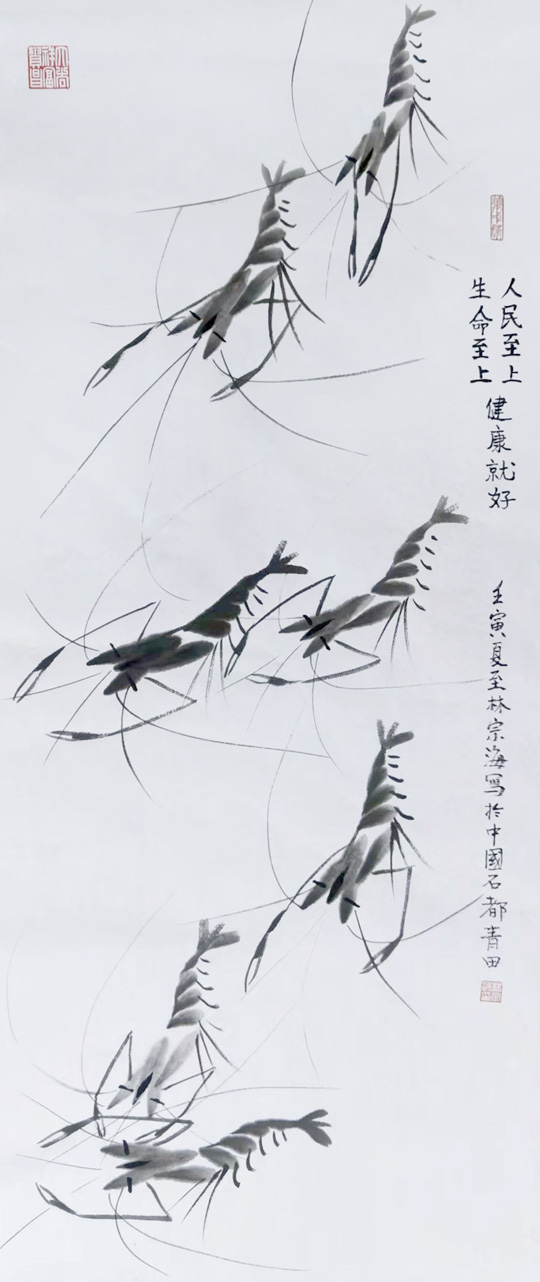 人民至上
生命至上
健康就好
壬寅夏至林宗海写於中國石都青田